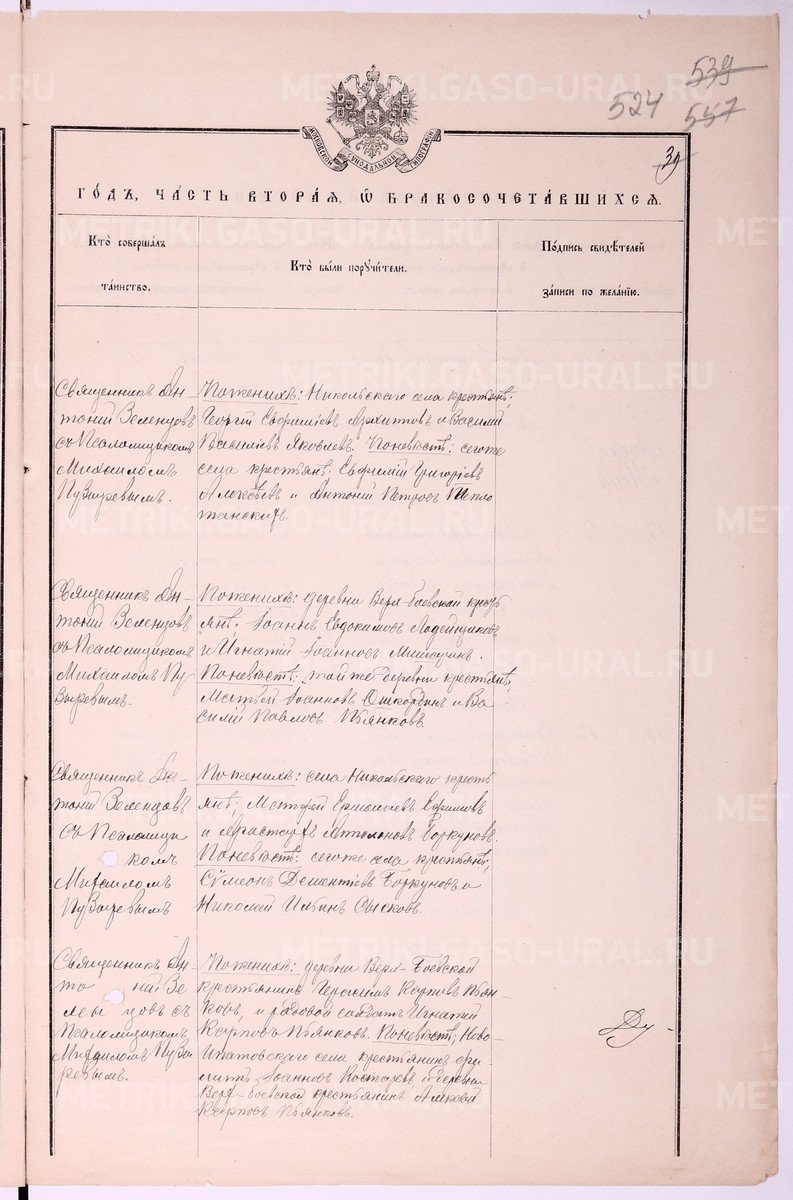 539
524 557
39
МОСКОВСКОЙ СѴНОДАЛЬНОЙ ТИПОГРАФІИ
ГО́ДЪ, ЧА́СТЬ ВТОРА́Я, Ѡ БРАКОСОЧЕТА́ВШИХСЯ.
Кто̀ соверша́лъ
та́инство.
Кто̀ бы́ли порꙋчи́тели.
По́дпись свидѣ́телей
за́писи по жела́нїю.
Священникъ Ан-
тоній Зеленцовъ
съ Псаломщикомъ
Михаиломъ
Пузыревымъ.
По женихѣ: Никольскаго села крестьянѣ;
Георгій Евфиміевъ Архиповъ и Василій
Василіевъ Яковлевъ. По невѣстѣ: сего же
села крестьянѣ: Евфимій Григоріевъ
и Антоній Петровъ
Священникъ Ан-
тоній Зеленцовъ
съ Псаломщикомъ
Михаиломъ Пу
зыревымъ.
По женихѣ: деревни Верх-Боевской кресть
янѣ: Іоаннъ Евдокимовъ Лодейщиковъ
и Игнатій Іоанновъ Мишаринъ.
По невѣстѣ: той же деревни крестьянѣ,
Матвѣй Іоанновъ Ошкординъ и Ва
силій Павловъ Пьянковъ.
Священникъ Ан-
тоній Зеленцовъ
съ Псаломщи
комъ
Михаиломъ
Пузыревымъ
По женихѣ: села Никольскаго кресть
янѣ; Матфей Ермолаевъ Ефимовъ
и Аристархъ Автономовъ Боркуновъ.
По невѣстѣ: сего же села крестьянѣ;
Сѵмеонъ Дементіевъ Боркуновъ и
Николай Ильинъ Сысковъ.
Священникъ Ан
то ній Зе
лен цовъ съ
Псаломщикомъ
Михаиломъ Пузы
ревымъ.
По женихѣ: деревни Верх-Боевской
крестьянинъ Герасимъ Карповъ Пьян-
ковъ, и рядовой солдатъ Игнатій
Карповъ Пьянковъ. По невѣстѣ; Ново-
Ипатовскаго села крестьянинъ Фи
липпъ Іоанновъ Костаревъ и деревни
Верх-Боевской крестьянинъ Алексѣй
Карповъ Пьянковъ.
METRIKI.GASO-URAL.RU